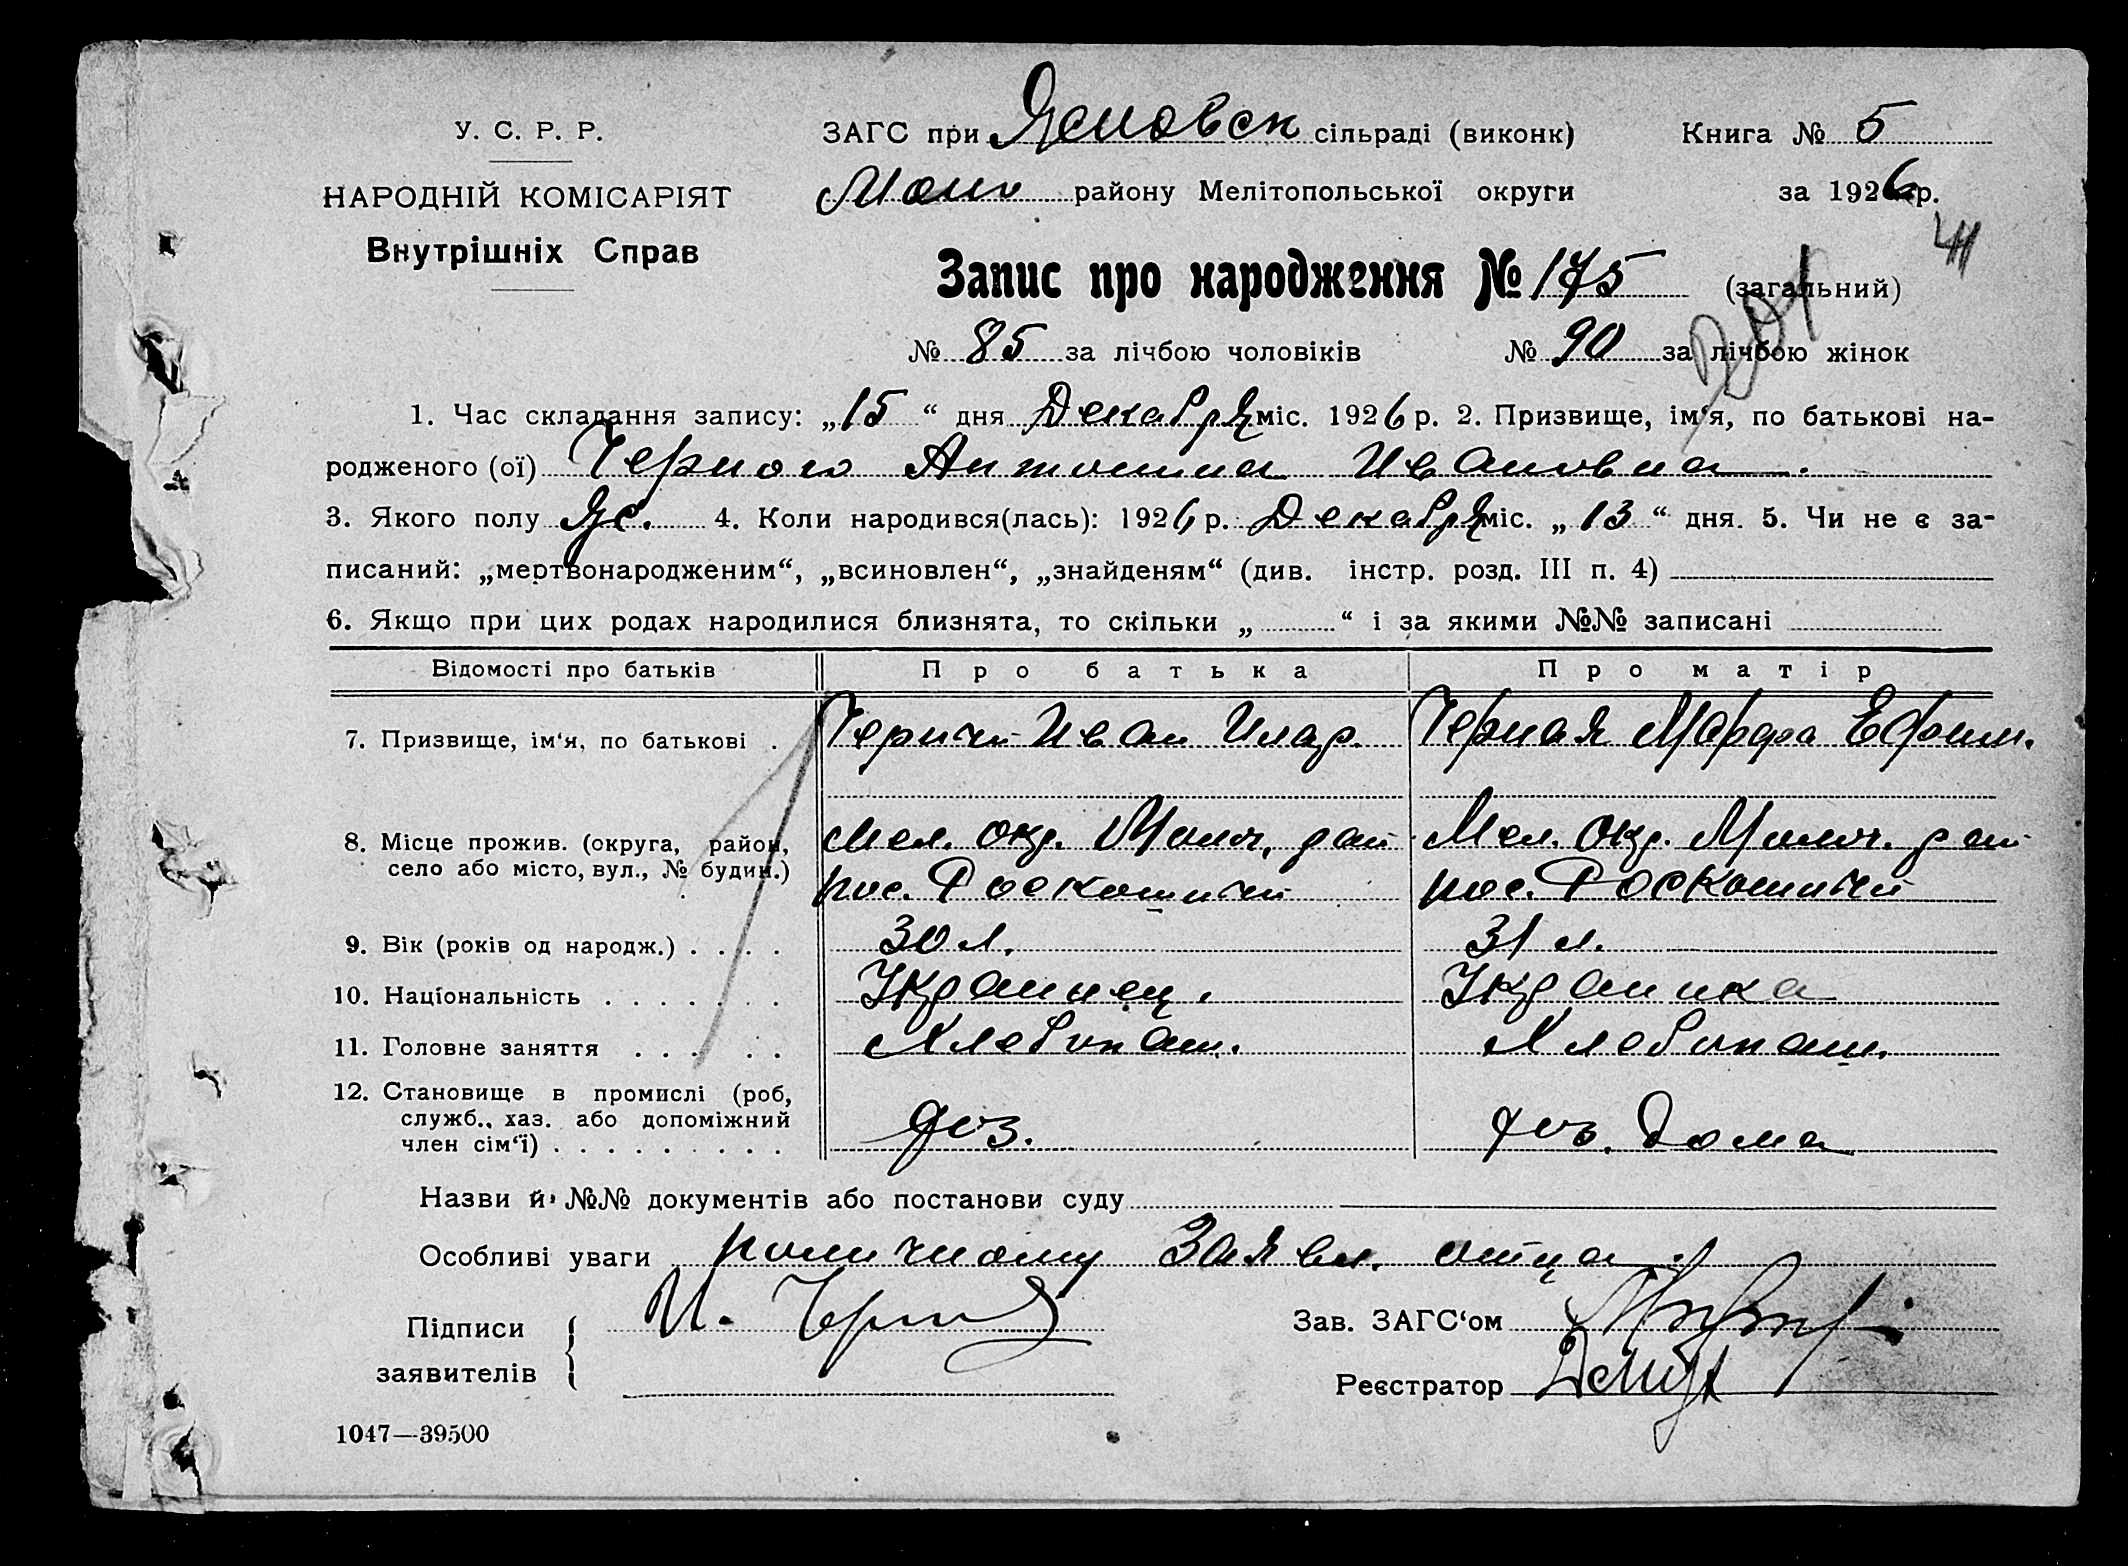 У. С. Р. Р.
НАРОДНІЙ КОМІСАРІЯТ
Внутрішніх Справ
ЗАГС при сільраді (виконк)
Книга № 5
району Мелітопольської округи
за 1926 р.
41
Запис про народження № 175 (загальний)
№ 85 за лічбою чоловіків № 90 за лічбою жінок
1. Час складання запису: „15“ дня Декабря міс. 1926 р. 2. Призвище, ім'я, по батькові на-
родженого (ої) Черного Антонина Ивановна.
3. Якого полу Же. 4. Коли народився(лась): 1926 р. Декабря міс. „13“ дня. 5. Чи не є за-
писаний: „мертвонародженим“, „всиновлен“, „знайденям“ (див. інстр. розд. III п. 4)
6. Якщо при цих родах народилися близнята, то скільки „ “ і за якими №№ записані
Відомості про батьків Про батька Про матір
7. Призвище, ім'я, по батькові . Черный Иван Илар. Черная Марфа Ефим.
8. Місце прожив. (округа, район, Мел. окр. рай Мел. Окр. рай
село або місто, вул., № будин.) пос. Роскошный пос. Роскошный
9. Вік (років од народж.) . . . . 30 л. 31 л.
10. Національність . . . . . . . Украинец. Украинка
11. Головне заняття . . . . . Хлебопаш. Хлебопаш.
12. Становище в промислі (роб,
служб., хаз. або допоміжний
член сім'ї) . . . . . . . . . дома
Назви й №№ документів або постанови суду
Особливі уваги по личному заявл. отца
Підписи
заявителів
И. Черный
Зав. ЗАГС'ом
Реєстратор
1047—39500